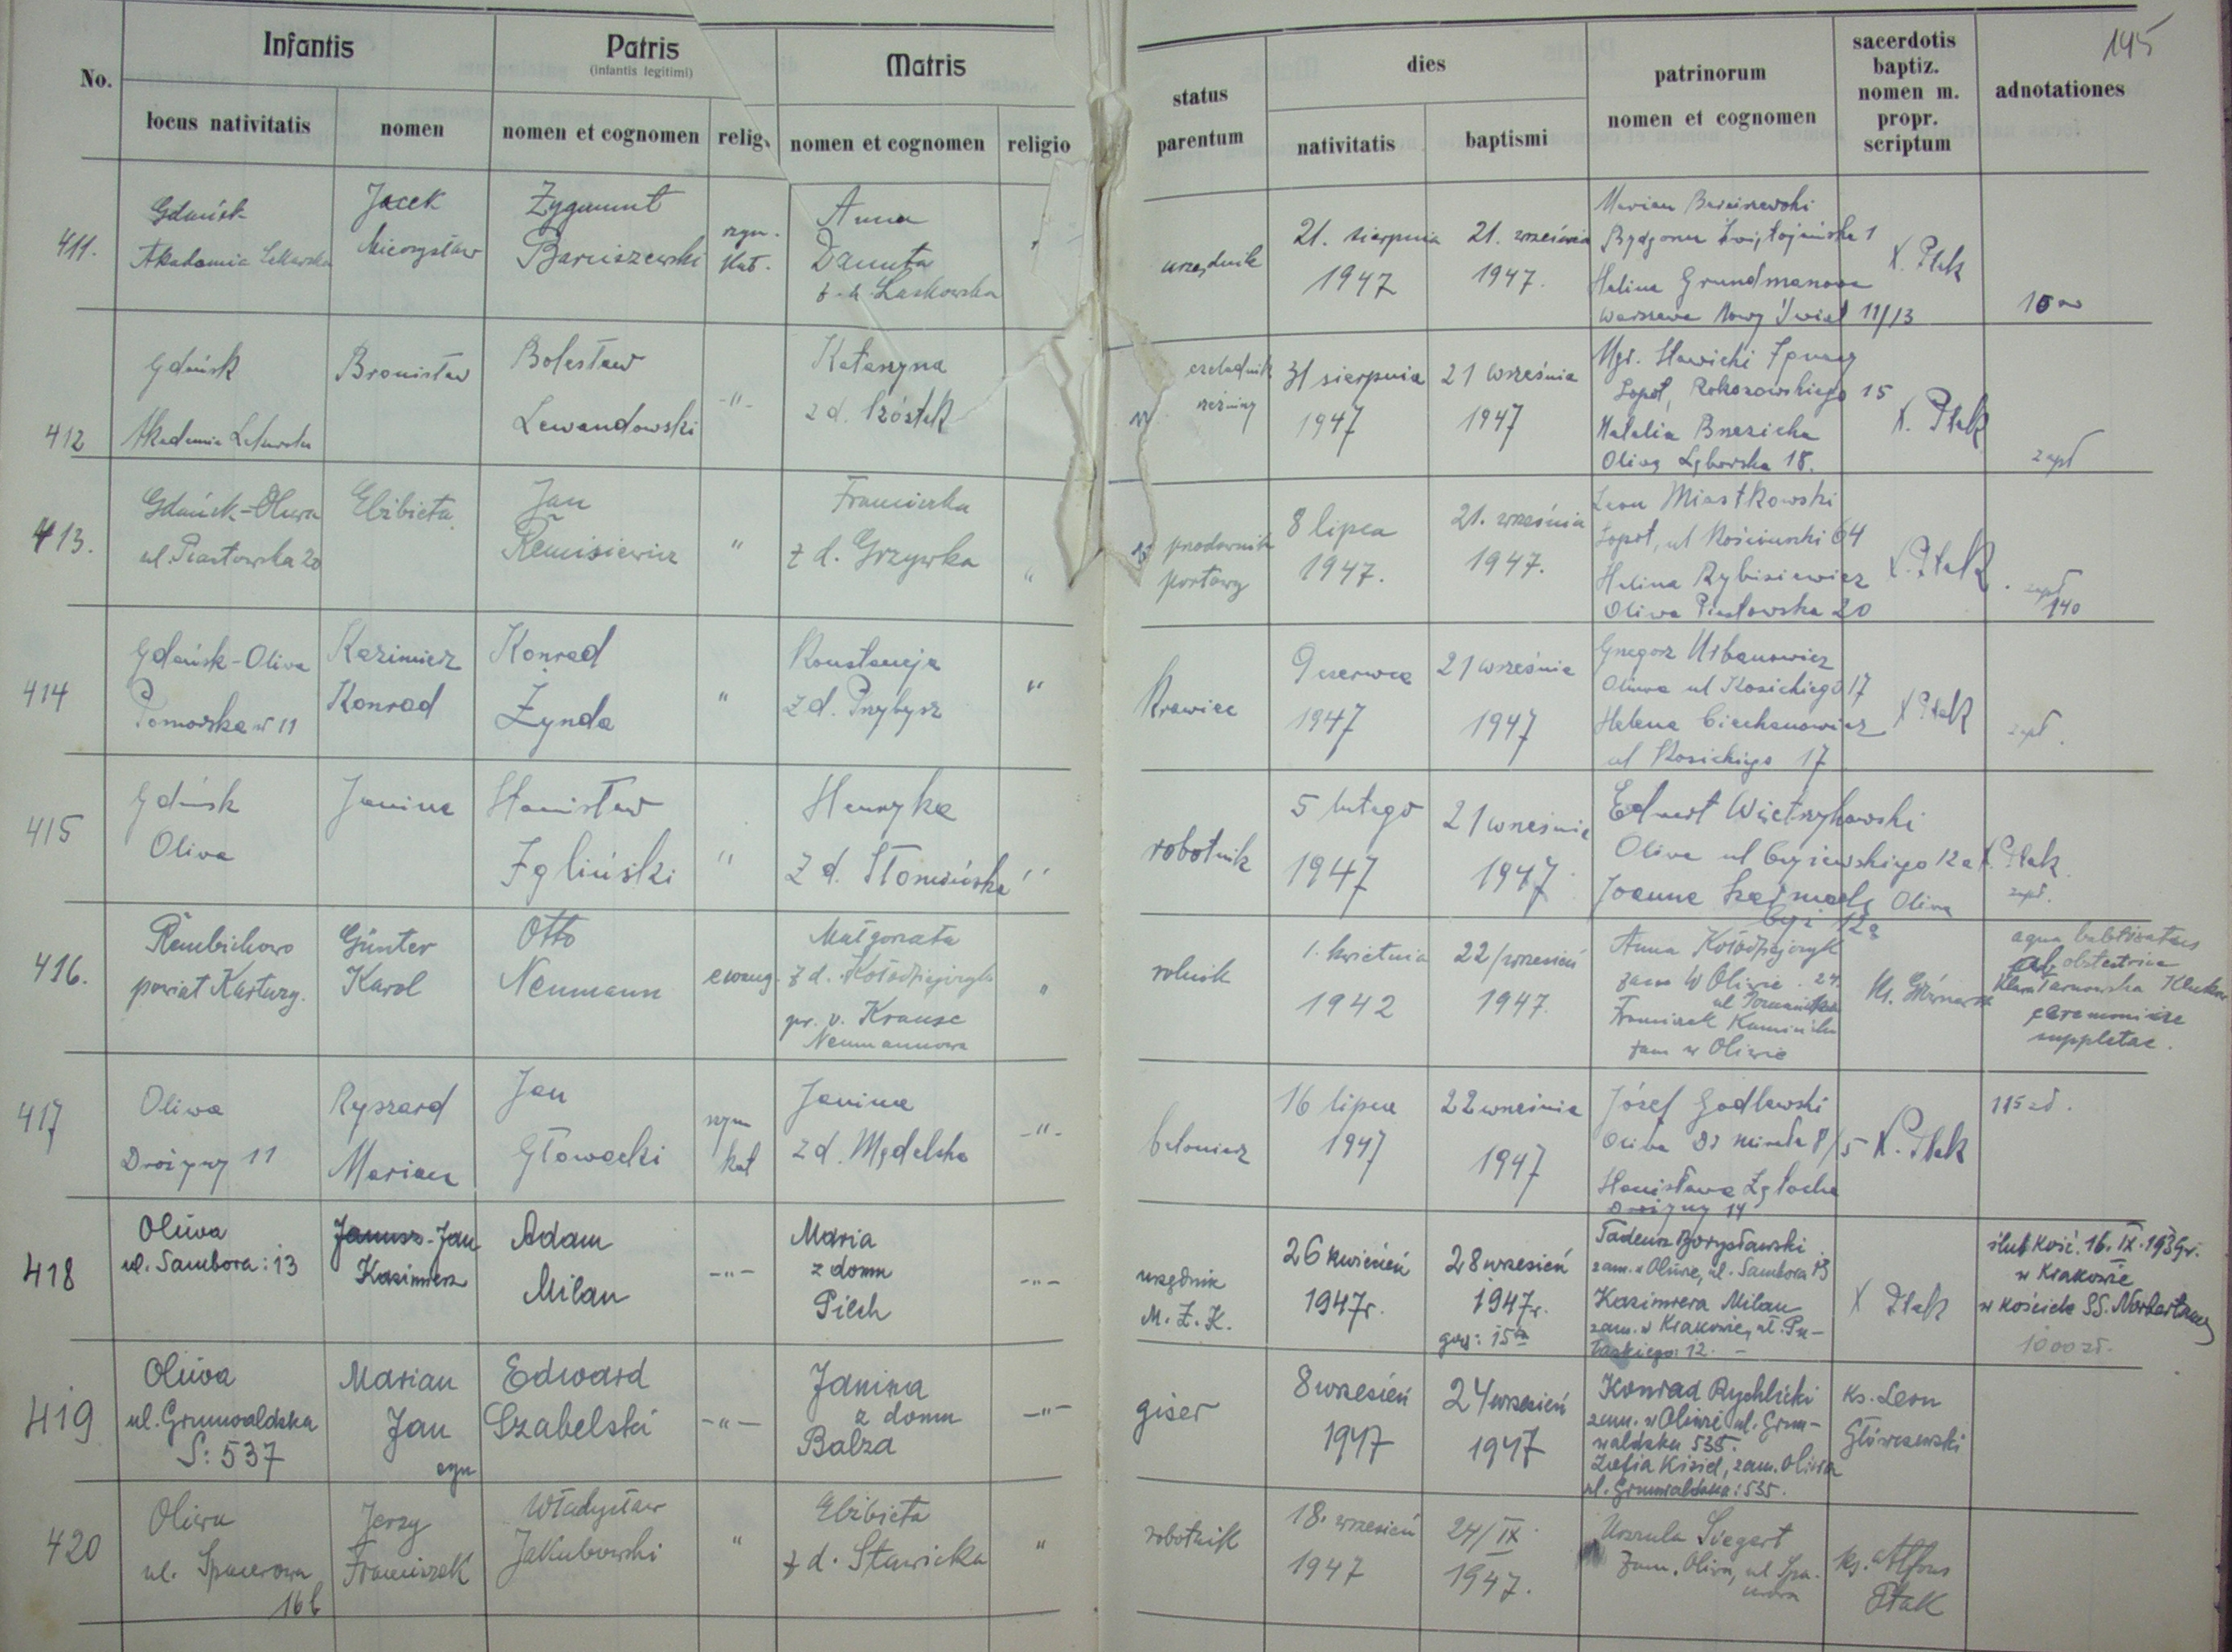 145
No.
Infantis
Patris
(infantis legitimi)
Matris
status
parentum
dies
patrinorum
nomen et cognomen
sacerdotis
baptiz.
nomen m.
propr.
scriptum
adnotationes
locus nativitatis
nomen
nomen et cognomen
relig.
nomen et cognomen
religio
nativitatis
baptismi
411.
Gdańsk
Akademia Lekarska
Jacek
Mieczysław
Zygmunt
Baruiszewski
rzym.
kat.
Anna
Danuta
Laskowska
"
urzędnik
21. sierpnia
1947
21. września
1947.
Marian
Helina Grundmanowa
Warszawa Nowy Świat 11/13
X. Ptak
412
Gdańsk
Akademia Lekarska
Bronisław
Bolesław
Lewandowski
-"-
Katarzyna
z d. Szóstak
czeladnik
rzeźniczy
31 sierpnia
1947
21 września
1947
Mgr. Sławicki Ignacy
Sopot, Rokosowskiego 15
Natalia
Oliwa Lęborska 18.
X. Ptak
zapł
413.
Gdańsk-Oliwa
ul. Piastowska 20
Elżbieta
Jan
Remisiewicz
"
Franciszka
z d. Grzywka
"
przodownik
portowy
8 lipca
1947.
21. września
1947.
Leon Miastkowski
Sopot, ul Kościuszki 64
Halina Rybisiewicz
Oliwa Piastowska 20
X. Ptak.
zapł
140
414
Gdańsk-Oliva
Pomorska nr 11
Kazimierz
Konrad
Konrad
Żynda
"
Konstancja
z d. Przybysz
"
Krawiec
9 czerwca
1947
21 września
1947
Grzegorz Urbanowicz
Oliwa ul Kosickiego 17
Helena Ciechanowicz
ul Kosickiego 17
X Ptak
zapł.
415
Gdańsk
Oliva
Janina
Stanisław
Igliński
"
Henryka
z d. Słomińska
"
robotnik
5 lutego
1947
21 września
1947
Edward Wietrzykowski
Oliva ul Czyżewskiego 12a
Joanna Oliva
Czyż 12a
X. Ptak
zapł.
416.
Rembichowo
powiat Kartuzy.
Günter
Karol
Otto
Neumann
ewang.
Małgorzata
z d. Kołodziejczyk
pr. v. Krause
Neumannowa
"
rolnik
1. kwietnia
1942
22/wrzesień
1947.
Anna Kołodziejczyk
zam w Oliwie. 24.
Franciszek Kamiński
zam w Oliwie
aqua babtisatus
ab obstetrice
Klara Tarnowska
ceremoniae
suppletae.
417
Oliwa
Drożyny 11
Ryszard
Marian
Jan
Głowacki
rzym
kat
Janina
z d. Mędelska
-"-
betoniarz
16 lipca
1947
22 września
1947
Józef Godlewski
Stanisława
Drożyny 14
X. Ptak
115 zł.
418
Oliwa
ul. Sambora: 13
Janusz-Jan
Kazimierz
Adam
Milan
-"-
Maria
z domu
Pilch
-"-
urzędnik
M.Z.K.
26 kwiecień
1947r.
28 wrzesień
1947r.
godz: 15ta
Tadeusz Borysławski
zam. w Oliwie, ul. Sambora 13
Kazimiera Milan
zam. w Krakowie, ul. Pu-
łaskiego: 12. -
X Ptak
ślub kość. 16. IX. 1939r.
w Krakowie
w kościele SS. Norbertanek
1000 zł.
419
Oliwa
ul. Grunwaldzka
S: 537
Marian
Jan
syn
Edward
Szabelski
-"-
Janina
z domu
Balza
-"-
giser
8 wrzesień
1947
24 wrzesień
1947
Konrad Rychlicki
zam. w Oliwie ul. Grun-
waldzka 535.
Zofia Kisiel, zam. Oliwa
ul. Grunwaldzka: 535.
Ks. Leon
Główczewski
420
Oliwa
ul. Spacerowa
16 b
Jerzy
Franciszek
Władysław
Jakubowski
"
Elżbieta
z d. Sławicka
"
robotnik
18. wrzesień
1947
24/IX
1947.
Urszula Siegert
Zam. Oliwa, ul Spa-
cerowa
ks. Alfons
Ptak